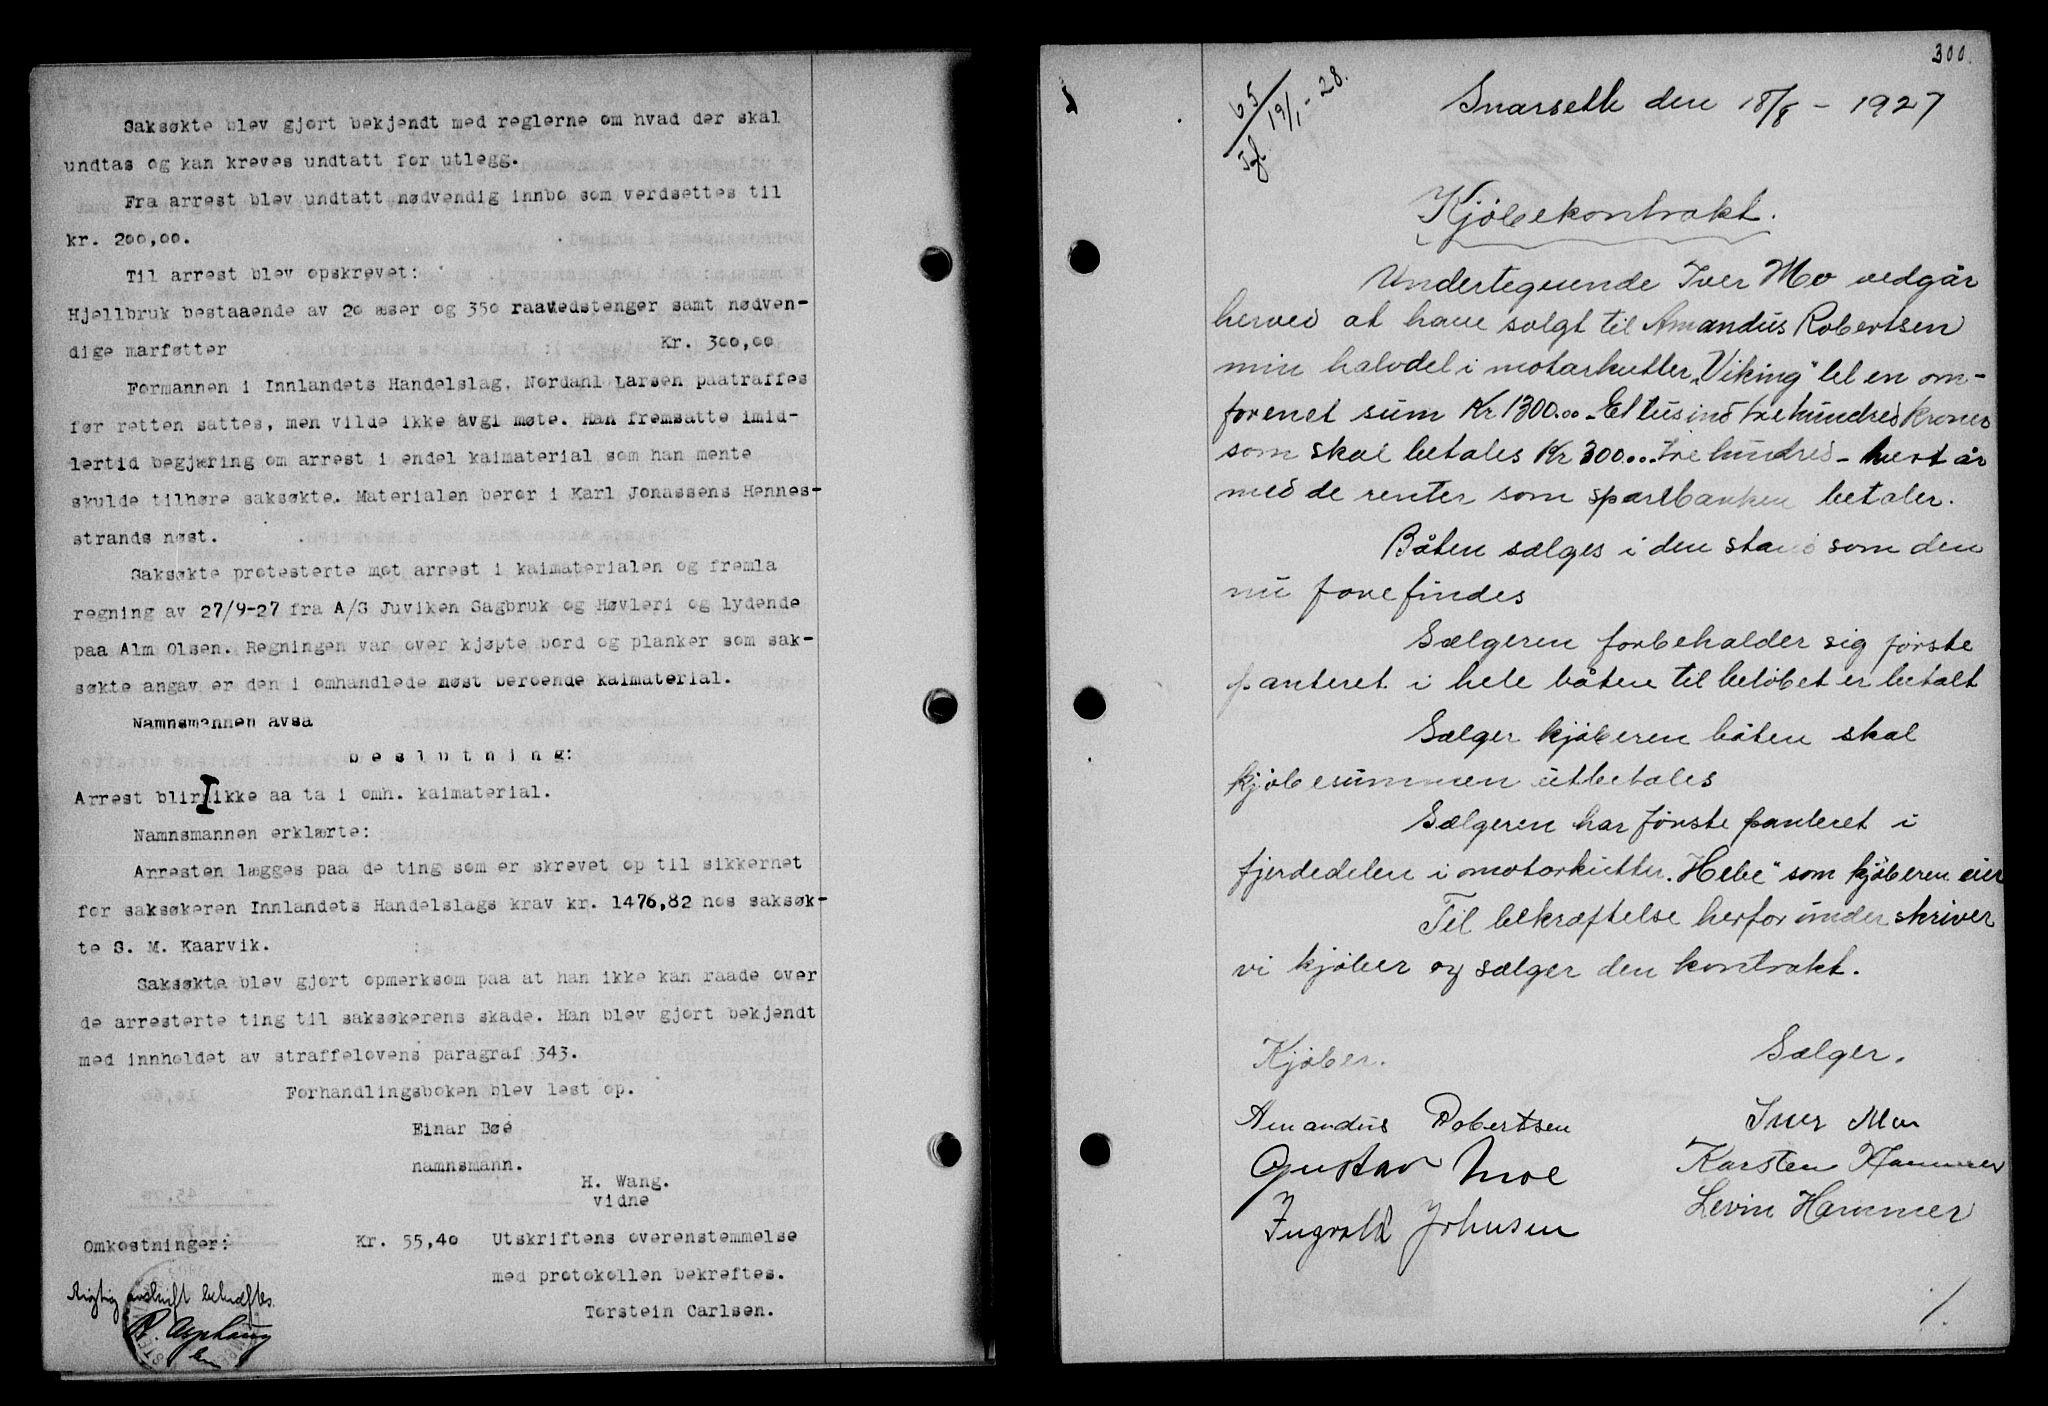 Saksøkte blev gjort bekjendt med reglerne om hvad der skal
undtas og kan kreves undtatt for utlegg.
Fra arrest blev undtatt nødvendig innbo som verdsettes til
kr. 200,00.
Til arrest blev opskrevet:
Hjellbruk bestaaende av 20 æser og 350 raavedstenger samt nødven-
dige marføtter Kr. 300,00
Formannen i Innlandets Handelslag, Nordahl Larsen paatraffes
før retten sattes, men vilde ikke avgi møte. Han fremsatte imid-
lertid begjæring om arrest i endel kaimaterial som han mente
skulde tilhøre saksøkte. Materialen beror i Karl Jonassens Hennes-
strands nøst.
Saksøkte protesterte mot arrest i kaimaterialen og fremla
regning av 27/9-27 fra A/S Juviken Sagbruk og Høvleri og lydende
paa Alm Olsen. Regningen var over kjøpte bord og planker som sak-
søkte angav er den i omhandlede nøst beroende kaimaterial.
Namnsmannen avsa
beslutning:
Arrest blir ikke aa ta i omh. kaimaterial.
Namnsmannen erklærte:
Arresten lægges paa de ting som er skrevet op til sikkerhet
for saksøkeren Innlandets Handelslags krav kr. 1476,82 hos saksøk-
te S. M. Kaarvik.
Saksøkte blev gjort opmerksom paa at han ikke kan raade over
de arresterte ting til saksøkerens skade. Han blev gjort bekjendt
med innholdet av straffelovens paragraf 343.
Forhandlingsboken blev lest op.
Einar Bøe
namnsmann.
H. Wang.
vidne
Omkostninger: Kr. 55,40 Utskriftens overenstemmelse
med protokollen bekreftes.
Torstein Carlsen.
Rigtig avskrift bekræftes.
Asphaug
300.
65
Tgl. 19/1-28.
Snarseth den 18/8 - 1927
Kjöbekontrakt.
Undertegnende Iver Mo vedgår
herved at have solgt til Amandus Robertsen
min halvdel i motorkutter "Viking" til en om-
forenet sum Kr 1300.00 - Et tusind trehundred kroner
som skal betales Kr 300.00. Tre hundred - hvert år
med de renter som sparebanken betaler.
Båten sælges i den stand som den
nu forefindes
Sælgeren forbeholder sig første
panteret i hele båten til beløbet er betalt
Sælger kjøberen båten skal
kjøbesummen utbetales
Sælgeren har første panteret i
fjerdedelen i motorkutter "Hebe" som kjøberen eier
Til bekræftelse herfor underskriver
vi kjøber og sælger den kontrakt.
Kjøber. Sælger.
Amandus Robertsen Iver Mo
Gustav Moe Karsten Hammer
Ingvald Johnsen Levin Hammer